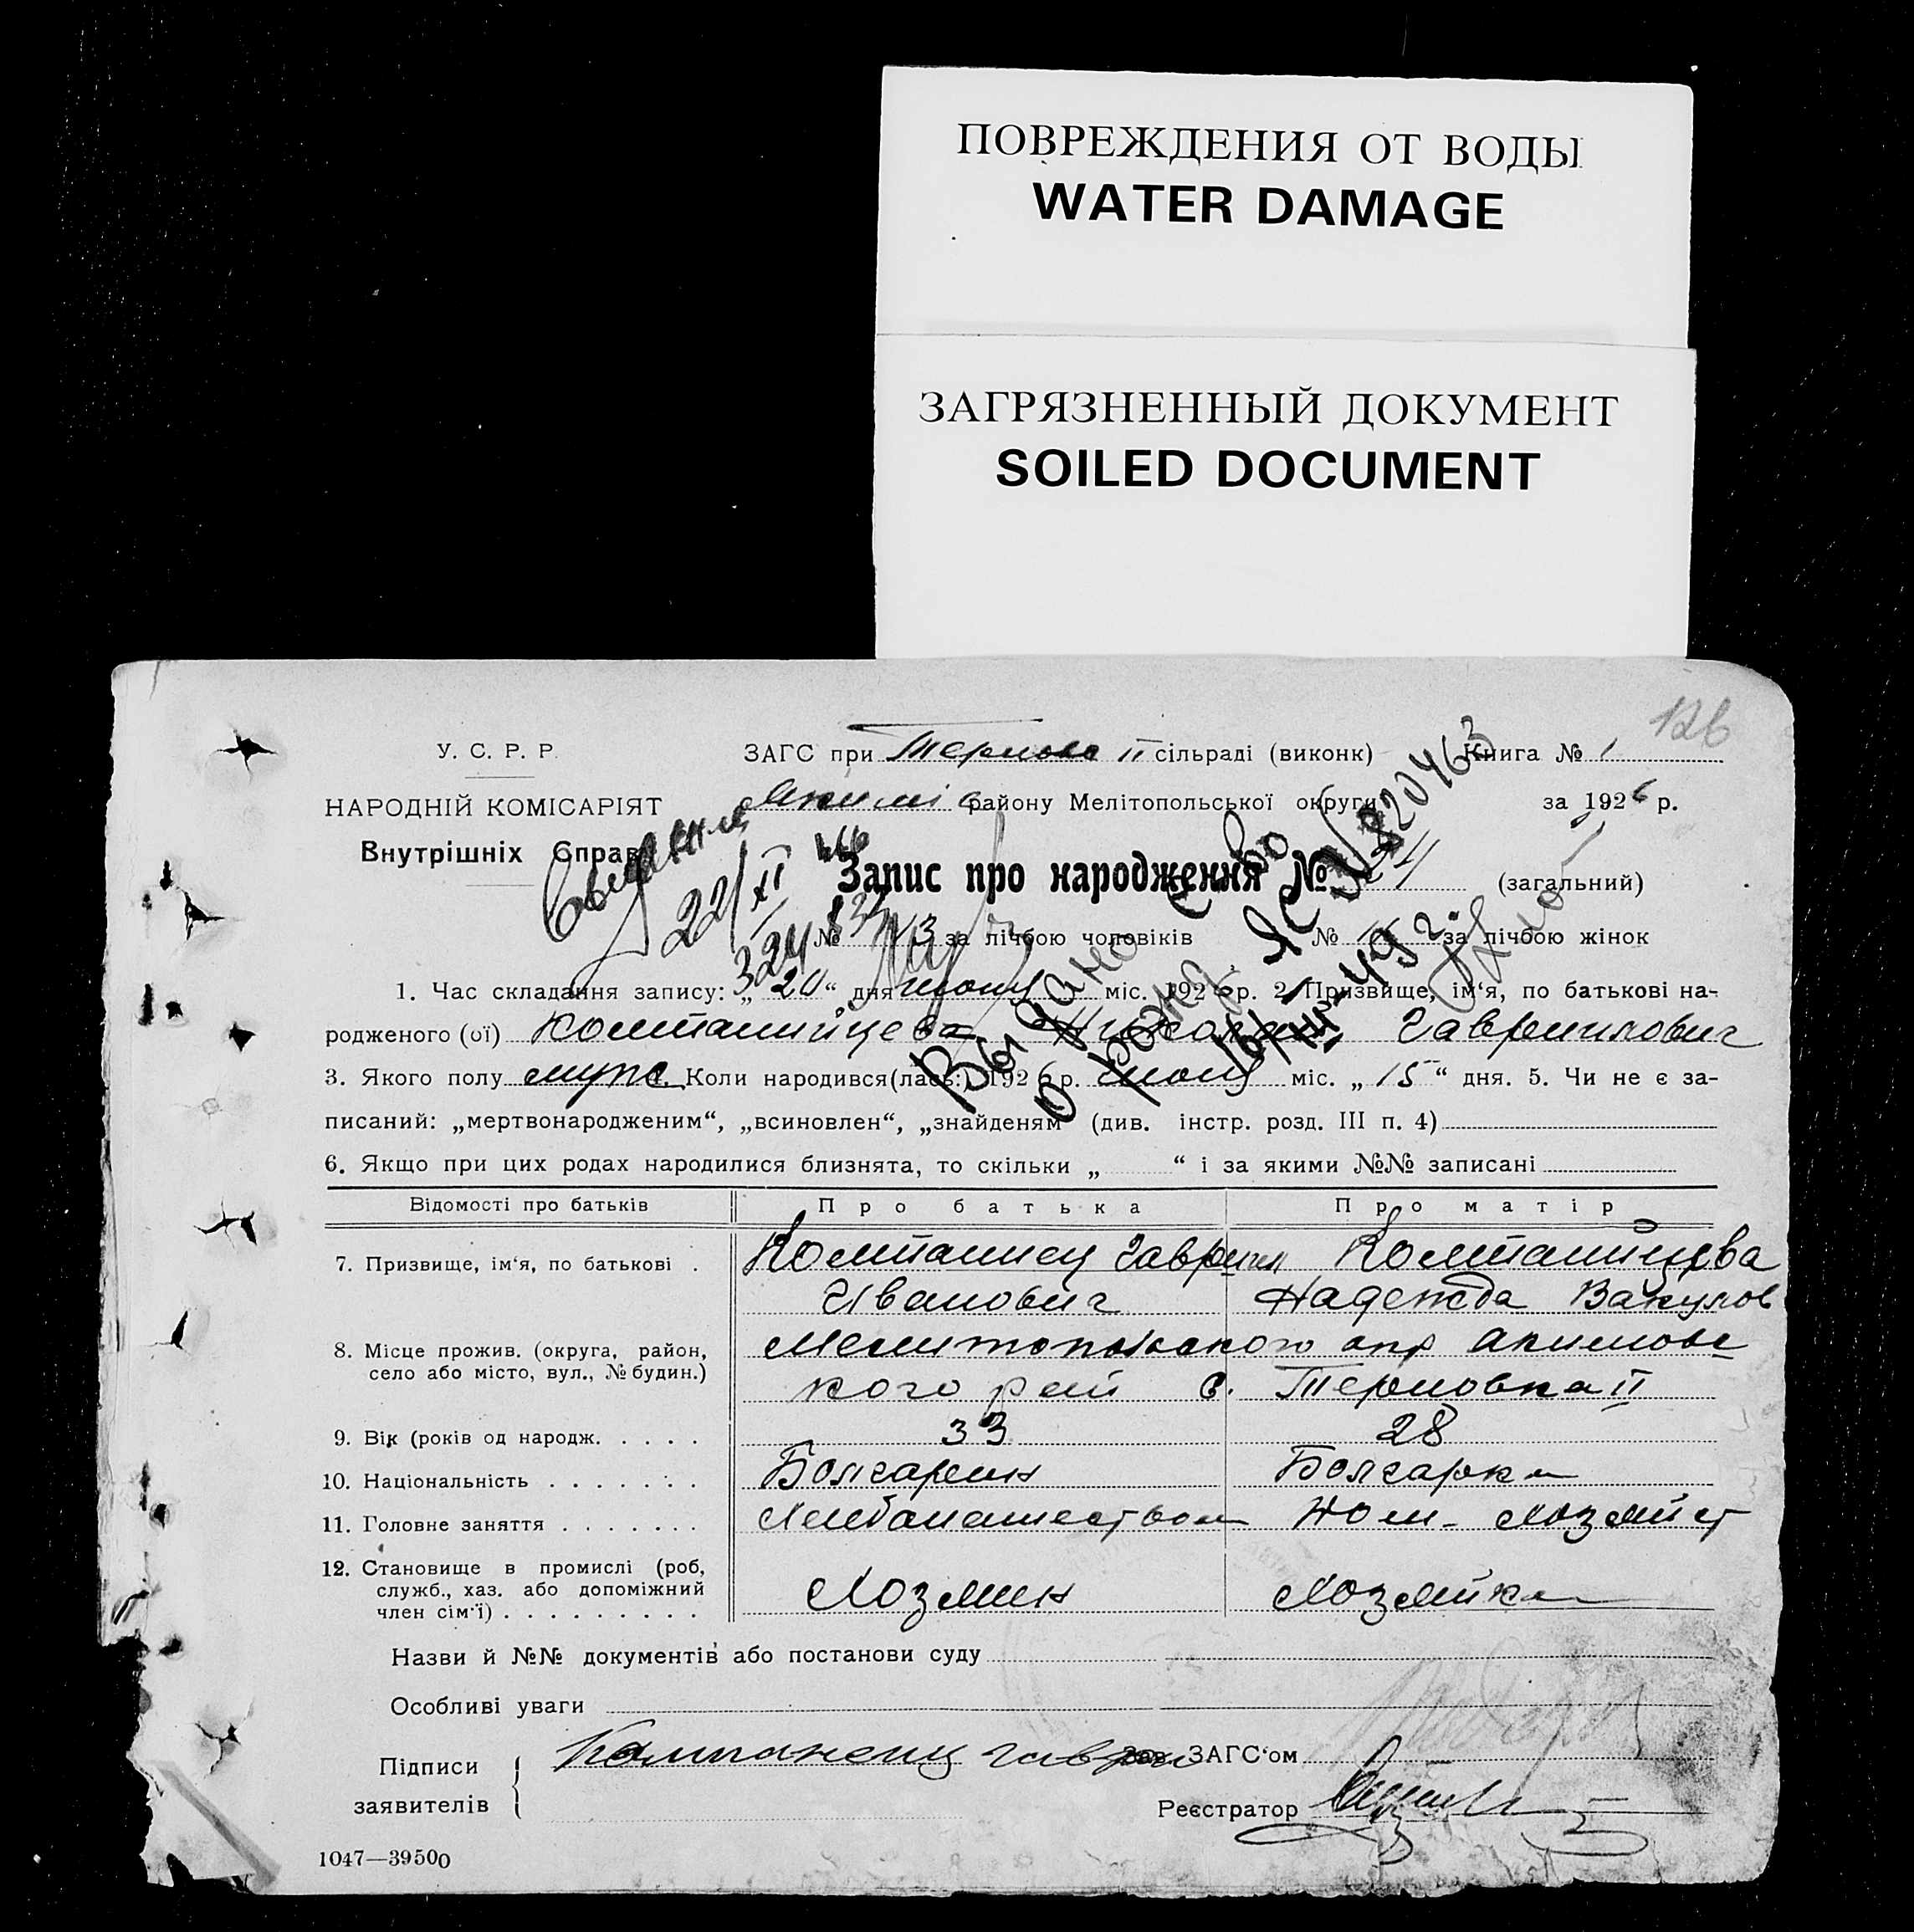 ПОВРЕЖДЕНИЯ ОТ ВОДЫ
WATER DAMAGE
ЗАГРЯЗНЕННЫЙ ДОКУМЕНТ
SOILED DOCUMENT
126
У. С. Р. Р. ЗАГС при Терново II сільраді (виконк) Книга № 1
НАРОДНІЙ КОМІСАРІЯТ Якимів району Мелітопольської округи за 1926 р.
Внутрішніх Справ
22/XI
Запис про народження № 24 (загальний)
№ 13 за лічбою чоловіків № за лічбою жінок
1. Час складання запису: „ 20 “ дня июня міс. 1926 р. 2. Призвище, ім'я, по батькові на-
родженого (ої) Компанийцева Николай Гавриилович
3. Якого полу муж. 4. Коли народився(лась:) 1926 р. июня міс. „ 15 “ дня. 5. Чи не є за-
писаний: „мертвонародженим“, „всиновлен“, „знайденям“ (див. інстр. розд. III п. 4)
6. Якщо при цих родах народилися близнята, то скільки „ “ і за якими №№ записані
Выдано св-во
о рожд. ЯС № 820463
Відомості про батьків Про батька Про матір
7. Призвище, ім'я, по батькові . Компаниец Гавриил Компанийцева
Иванович Надежда Вакулов
8. Місце прожив. (округа, район, село або місто, вул., № будин.) Мелитопольского окр Акимовс
кого рай с. Терновка II
9. Вік (років од народж. . . . . 33 28
10. Національність . . . . . . . Болгарин Болгарка
11. Головне заняття . . . . . . . Хлебопашеством Дом. хозяйст
12. Становище в промислі (роб, служб., хаз. або допоміжний член сім'ї) . . . . . . . . . Хозяин Хозяйка
Назви й №№ документів або постанови суду
Особливі уваги
Підписи заявителів Компанеец Гаврил Зав. ЗАГС'ом
Реєстратор
1047—39500